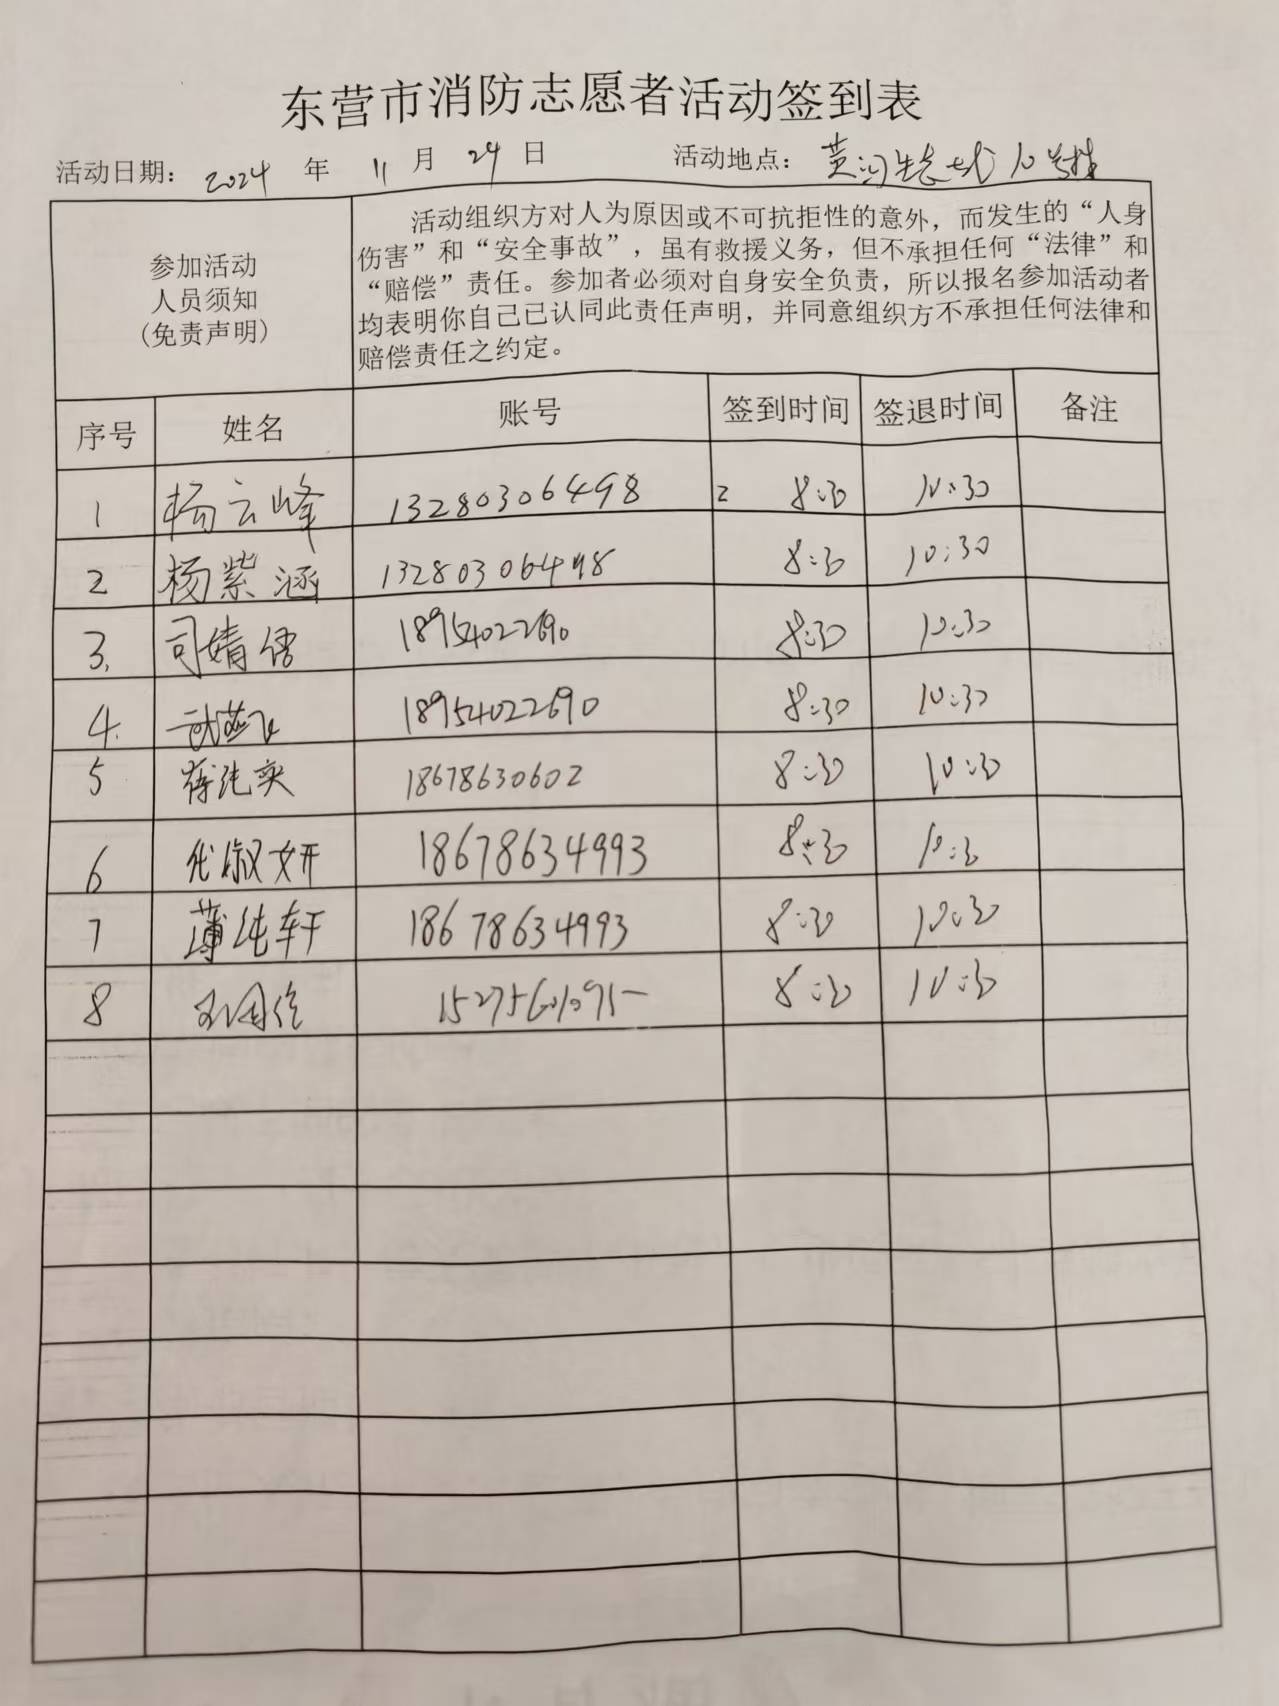 东营市消防志愿者活动签到表
活动日期： 2024 年 11 月 24 日 活动地点： 黄河生态城10号楼
参加活动
人员须知
(免责声明)
活动组织方对人为原因或不可抗拒性的意外，而发生的“人身
伤害”和“安全事故”，虽有救援义务，但不承担任何“法律”和
“赔偿”责任。参加者必须对自身安全负责，所以报名参加活动者
均表明你自己已认同此责任声明，并同意组织方不承担任何法律和
赔偿责任之约定。
序号 姓名 账号 签到时间 签退时间 备注
1 杨云峰 13280306498 2 8:30 10:30
2 杨紫涵 13280306498 8:30 10:30
3. 司婧 18954022690 8:30 10:30
4. 18954022690 8:30 10:30
5 18678630602 8:30 10:30
6 淑妍 18678634993 8:30 10:30
7 薄纯轩 18678634993 8:30 10:30
8 8:30 10:30